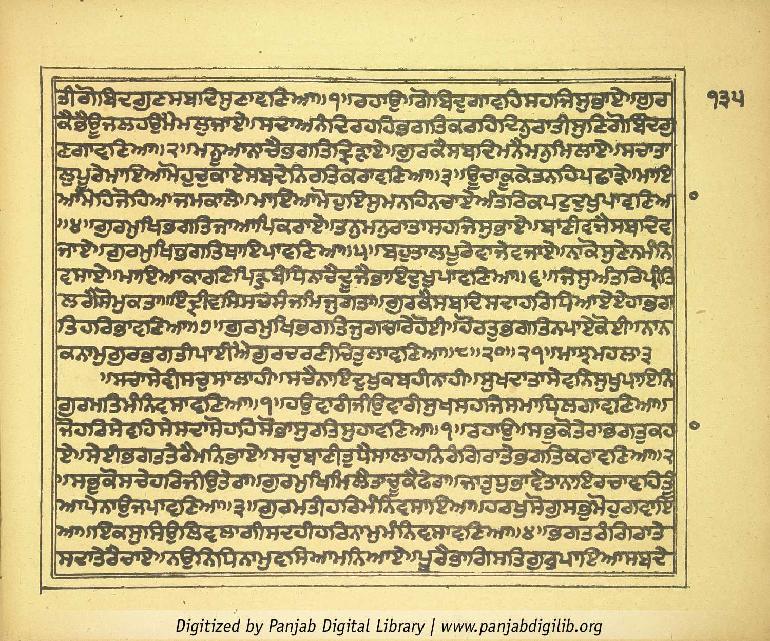 ਤੀ ਗੋਬਿਦ ਗੁਣ ਸਬਾਦਿ ਸੁਣਾਵਣਿਆ॥੧॥ਰਹਾਉ॥ਗੋਬਿਦੁ ਗਾਵਹਿ ਸਹਜਿ ਸੁਭਾਏ॥ਗੁਰ
ਕੈ ਭੈ ਊਜਲ ਹਉਮੈ ਮਲੁ ਜਾਏ॥ਸਦਾ ਅਨੰਦਿ ਰਹਹਿ ਭਗਤਿ ਕਰਹਿ ਦਿਨੁ ਰਾਤੀ ਸੁਣਿ ਗੋਬਿਦ ਗੁ
ਣ ਗਾਵਣਿਆ॥੨॥ਮਨੂਆ ਨਾਚੈ ਭਗਤਿ ਦ੍ਰਿੜਾਏ॥ਗੁਰ ਕੈ ਸਬਦਿ ਮਨੈ ਮਨੁ ਮਿਲਾਏ॥ਸਚਾ ਤਾ
ਲੁ ਪੂਰੇ ਮਾਇਆ ਮੋਹੁ ਚੁਕਾਏ ਸਬਦੇ ਨਿਰਤਿ ਕਰਾਵਣਿਆ॥੩॥ਊਚਾ ਕੂਕੇ ਤਨਹਿ ਪਛਾੜੇ॥ਮਾਇ
ਆ ਮੋਹਿ ਜੋਹਿਆ ਜਮਕਾਲੇ॥ਮਾਇਆ ਮੋਹੁ ਇਸੁ ਮਨਹਿ ਨਚਾਏ ਅੰਤਰਿ ਕਪਟੁ ਦੁਖੁ ਪਾਵਣਿਆ
॥੪॥ਗੁਰਮੁਖਿ ਭਗਤਿ ਜਾ ਆਪਿ ਕਰਾਏ॥ਤਨੁ ਮਨੁ ਰਾਤਾ ਸਹਜਿ ਸੁਭਾਏ॥ਬਾਣੀ ਵਜੈ ਸਬਦਿ ਵ
ਜਾਏ॥ਗੁਰਮੁਖਿ ਭਗਤਿ ਥਾਇ ਪਾਵਣਿਆ॥੫॥ਬਹੁ ਤਾਲ ਪੂਰੇ ਵਾਜੇ ਵਜਾਏ॥ਨਾ ਕੋ ਸੁਣੇ ਨ ਮੰਨਿ
ਵਸਾਏ॥ਮਾਇਆ ਕਾਰਣਿ ਪਿੜ ਬੰਧਿ ਨਾਚੈ ਦੂਜੈ ਭਾਇ ਦੁਖੁ ਪਾਵਣਿਆ॥੬॥ਜਿਸੁ ਅੰਤਰਿ ਪ੍ਰੀਤਿ
ਲਗੈ ਸੋ ਮੁਕਤਾ॥ਇੰਦ੍ਰੀ ਵਸਿ ਸਚ ਸੰਜਮਿ ਜੁਗਤਾ॥ਗੁਰ ਕੈ ਸਬਦਿ ਸਦਾ ਹਰਿ ਧਿਆਏ ਏਹਾ ਭਗ
ਤਿ ਹਰਿ ਭਾਵਣਿਆ॥੭॥ਗੁਰਮੁਖਿ ਭਗਤਿ ਜੁਗ ਚਾਰੇ ਹੋਈ॥ਹੋਰਤੁ ਭਗਤਿ ਨ ਪਾਏ ਕੋਈ॥ਨਾਨ
ਕ ਨਾਮੁ ਗੁਰ ਭਗਤੀ ਪਾਈਐ ਗੁਰ ਚਰਣੀ ਚਿਤੁ ਲਾਵਣਿਆ॥੮॥੨੦॥੨੧॥ਮਾਝ ਮਹਲਾ ੩
॥ਸਚਾ ਸੇਵੀ ਸਚੁ ਸਾਲਾਹੀ॥ਸਚੈ ਨਾਇ ਦੁਖੁ ਕਬ ਹੀ ਨਾਹੀ॥ਸੁਖਦਾਤਾ ਸੇਵਨਿ ਸੁਖੁ ਪਾਇਨਿ
ਗੁਰਮਤਿ ਮੰਨਿ ਵਸਾਵਣਿਆ॥੧॥ਹਉ ਵਾਰੀ ਜੀਉ ਵਾਰੀ ਸੁਖ ਸਹਜਿ ਸਮਾਧਿ ਲਗਾਵਣਿਆ॥
ਜੋ ਹਰਿ ਸੇਵਹਿ ਸੇ ਸਦਾ ਸੋਹਹਿ ਸੋਭਾ ਸੁਰਤਿ ਸੁਹਾਵਣਿਆ॥੧॥ਰਹਾਉ॥ਸਭੁ ਕੋ ਤੇਰਾ ਭਗਤੁ ਕਹ
ਾਏ॥ਸੇਈ ਭਗਤ ਤੇਰੈ ਮਨਿ ਭਾਏ॥ਸਚੁ ਬਾਣੀ ਤੁਧੈ ਸਾਲਾਹਨਿ ਰੰਗਿ ਰਾਤੇ ਭਗਤਿ ਕਰਾਵਣਿਆ॥੨
॥ਸਭੁ ਕੋ ਸਚੇ ਹਰਿ ਜੀਉ ਤੇਰਾ॥ਗੁਰਮੁਖਿ ਮਿਲੈ ਤਾ ਚੂਕੈ ਫੇਰਾ॥ਜਾ ਤੁਧੁ ਭਾਵੈ ਤਾ ਨਾਇ ਰਚਾਵਹਿ ਤੂੰ
ਆਪੇ ਨਾਉ ਜਪਾਵਣਿਆ॥੩॥ਗੁਰਮਤੀ ਹਰਿ ਮੰਨਿ ਵਸਾਇਆ॥ਹਰਖੁ ਸੋਗੁ ਸਭੁ ਮੋਹੁ ਗਵਾਇ
ਆ॥ਇਕਸੁ ਸਿਉ ਲਿਵ ਲਾਗੀ ਸਦ ਹੀ ਹਰਿ ਨਾਮੁ ਮੰਨਿ ਵਸਾਵਣਿਆ॥੪॥ਭਗਤ ਰੰਗਿ ਰਾਤੇ
ਸਦਾ ਤੇਰੈ ਚਾਏ॥ਨਉ ਨਿਧਿ ਨਾਮੁ ਵਸਿਆ ਮਨਿ ਆਏ॥ਪੂਰੈ ਭਾਗਿ ਸਤਿਗੁਰੁ ਪਾਇਆ ਸਬਦੇ
੧੩੫
Digitized by Panjab Digital Library | www.panjabdigilib.org